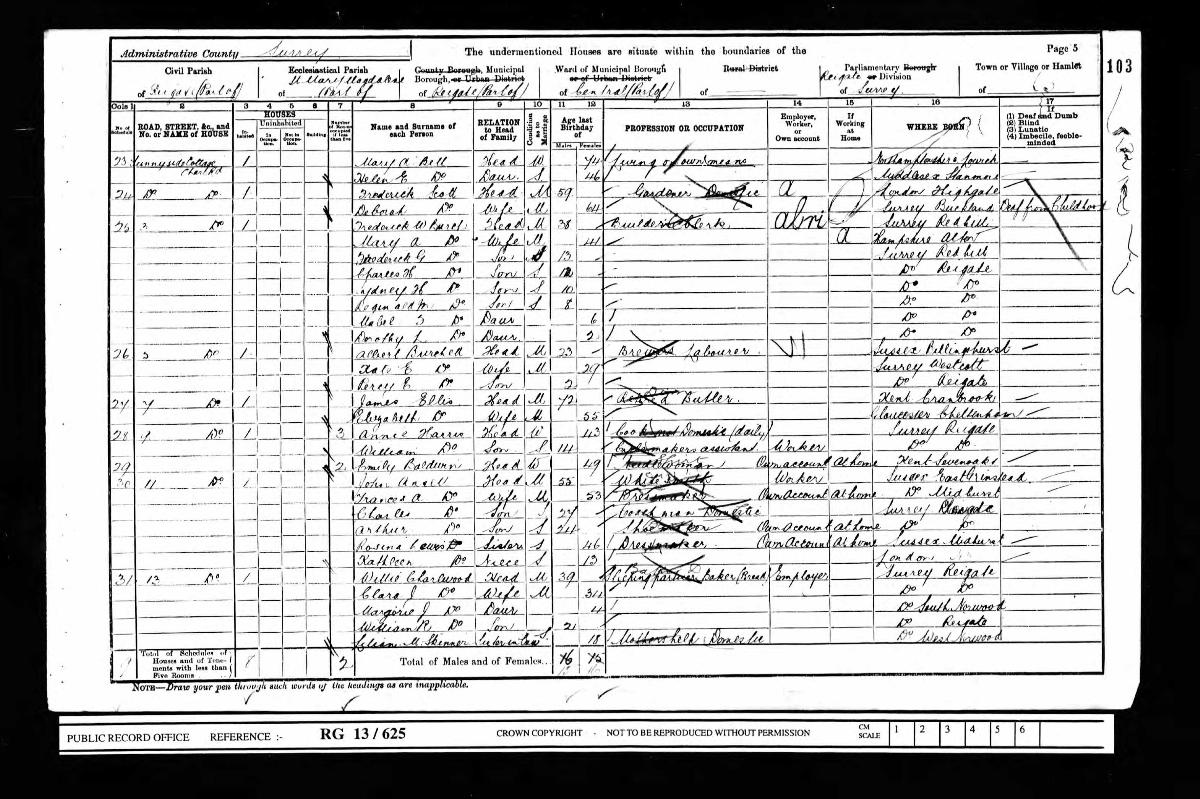 Administrative County Surrey
The undermentioned Houses are situate within the boundaries of the
Page 5
103
Civil Parish
of Reigate (Part of)
Ecclesiastical Parish
St Mary Magdalene
of Part of
County Borough, Municipal
Borough, or Urban District
of Reigate (Part of)
Ward of Municipal Borough
or of Urban District
of Central (Part of)
Rural District
of
Parliamentary Borough
Reigate or Division
of Surrey
Town or Village or Hamlet
of
Cols 1 2 3 4 5 6 7 8 9 10 11 12 13 14 15 16 17
No. of Schedule
ROAD, STREET, &c., and No. or NAME of HOUSE
HOUSES
Inhabited
Uninhabited
In Occupation
Not in Occupation
Building
Number of Rooms occupied if less than five
Name and Surname of each Person
RELATION to Head of Family
Condition as to Marriage
Age last Birthday of
Males Females
PROFESSION OR OCCUPATION
Employer, Worker, or Own account
If Working at Home
WHERE BORN
If
(1) Deaf and Dumb
(2) Blind
(3) Lunatic
(4) Imbecile, feeble-minded
23 Sunnyside Cottage 1 Mary A Bell Head W 74 Living on own means
Helen E Do Daur S 46 Middlesex Stanmore
24 Do Do 1 Frederick Scott Head M 59 Gardener Domestic London Highgate
Deborah Do Wife M 64 Surrey Buckland Deaf from Childhood
25 3 Do 1 Frederick W Head M 38 Builders Clerk Surrey Redhill
Mary A Do Wife M 41 Hampshire Alton
Frederick G Do Son S 13 Surrey Redhill
Charles H Do Son S 12 Do Reigate
Sydney H Do Son S 10 Do Do
Reginald Do Son S 8 Do Do
Mabel Do Daur 6 Do Do
Dorothy L Do Daur 2 Do Do
26 5 Do 1 Albert Burched Head M 23 Brewers Labourer Sussex Billingshurst
Kate E Do Wife M 29 Surrey Westcott
Percy E Do Son 2 Do Reigate
27 7 Do 1 James Ellis Head M 72 Retired Butler Kent Cranbrook
Elizabeth Do Wife M 55 Gloucester Cheltenham
28 Do 1 3 Annie Harris Head W 43 Cook Domestic (daily) Surrey Reigate
William Do Son S 14 assistant Worker Do Do
29 2 Emily Baldwin Head W 49 Needlewoman Own account At home Kent Sevenoaks
30 11 Do 1 John Ansell Head M 55 Whitesmith Worker Sussex East Grinstead
Frances A Do Wife M 53 Dressmaker Own Account At home Do Midhurst
Charles Do Son S 27 Coachman Domestic Surrey
Arthur Do Son S 24 Own Account At home Do Do
Rosina Lewis Sister S 46 Dressmaker Own Account At home Sussex
Kathleen Do Niece S 13 London
31 13 Do 1 Willie Charlwood Head M 39 Baker (Bread) Employer Surrey Reigate
Clara J Do Wife M 34 Do Do
Marjorie J Do Daur 4 Do South Norwood
William R Do Son 2 Do Reigate
Lilian M. Skinner Sister in law S 18 Mothers help Domestic Do West Norwood
Total of Schedules of Houses and of Tenements with less than Five Rooms
9 8 2 Total of Males and of Females... 16 15
NOTE—Draw your pen through such words of the headings as are inapplicable.
PUBLIC RECORD OFFICE REFERENCE :- RG 13/625 CROWN COPYRIGHT - NOT TO BE REPRODUCED WITHOUT PERMISSION CM SCALE 1 2 3 4 5 6